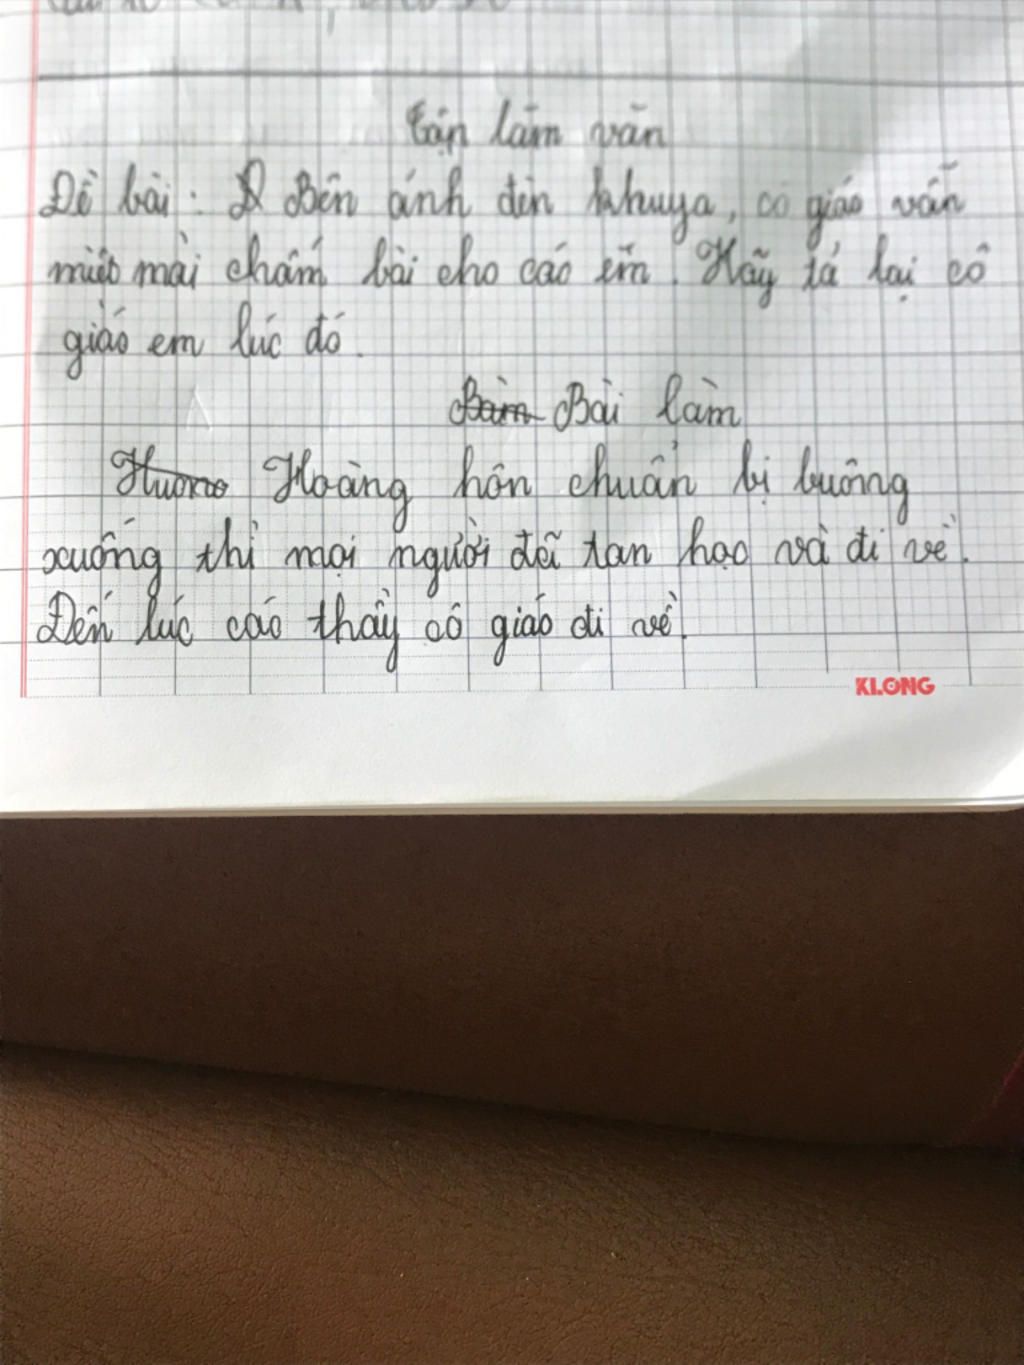 Tập làm văn
Đề bài: Bên ánh đèn khuya, cô giáo vẫn
miệt mài chấm bài cho các em. Hãy tả lại cô
giáo em lúc đó.
Bài làm
Hoàng hôn chuẩn bị buông
xuống thì mọi người đã tan học và đi về.
Đến lúc các thầy cô giáo đi về.
KLONG